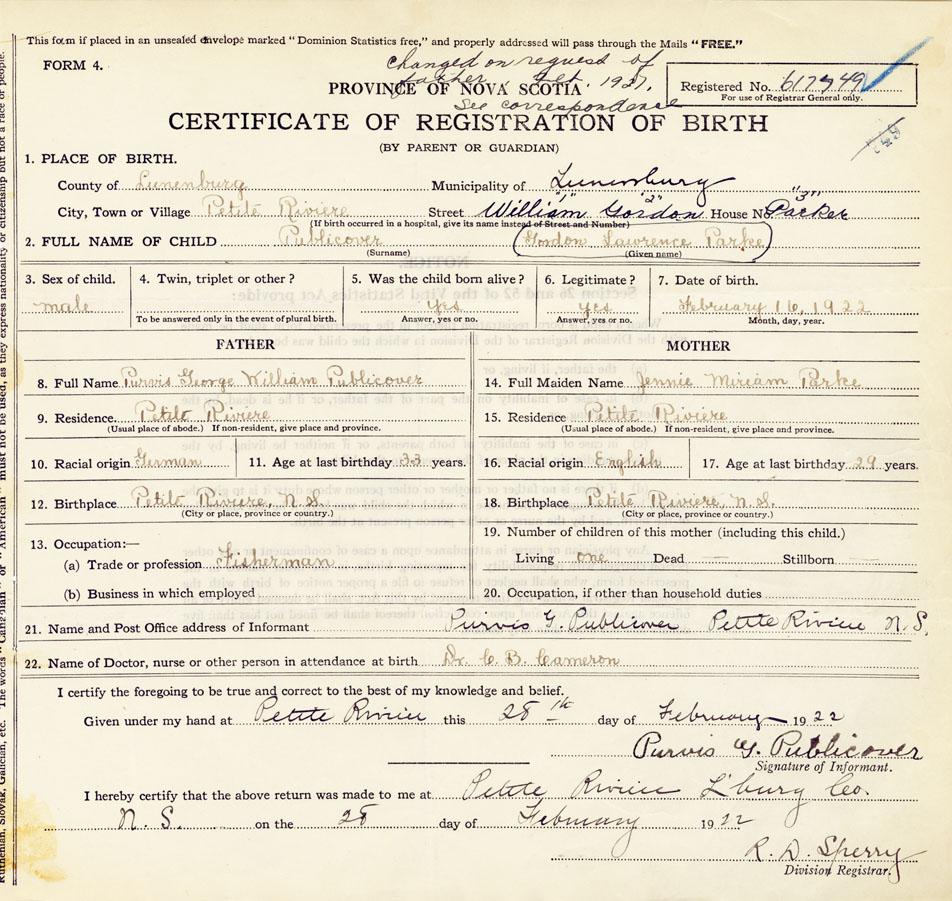 This form if placed in an unsealed envelope marked "Dominion Statistics free," and properly addressed will pass through the Mails "FREE."
FORM 4.
changed on request of
father, Feb. 1927.
PROVINCE OF NOVA SCOTIA
See correspondence
Registered No. 617749
For use of Registrar General only.
749
CERTIFICATE OF REGISTRATION OF BIRTH
(BY PARENT OR GUARDIAN)
1. PLACE OF BIRTH.
County of Lunenburg Municipality of Lunenburg
"1" "2" "3"
City, Town or Village Petite Riviere Street William Gordon House No. Parker
(If birth occurred in a hospital, give its name instead of Street and Number)
2. FULL NAME OF CHILD Publicover (Gordon Lawrence Parke)
(Surname) (Given name)
3. Sex of child. 4. Twin, triplet or other? 5. Was the child born alive? 6. Legitimate? 7. Date of birth.
male Yes yes February 16, 1922
To be answered only in the event of plural birth. Answer, yes or no. Answer, yes or no. Month, day, year.
FATHER MOTHER
8. Full Name Purvis George William Publicover 14. Full Maiden Name Jennie Miriam Parke
9. Residence Petite Riviere 15. Residence Petite Riviere
(Usual place of abode.) If non-resident, give place and province. (Usual place of abode.) If non-resident, give place and province.
10. Racial origin German 11. Age at last birthday 33 years. 16. Racial origin English 17. Age at last birthday 29 years.
12. Birthplace Petite Riviere, N.S. 18. Birthplace Petite Riviere, N.S.
(City or place, province or country.) (City or place, province or country.)
13. Occupation:— 19. Number of children of this mother (including this child.)
(a) Trade or profession Fisherman Living one Dead — Stillborn —
(b) Business in which employed 20. Occupation, if other than household duties
21. Name and Post Office address of Informant Purvis G. Publicover Petite Riviere N.S.
22. Name of Doctor, nurse or other person in attendance at birth Dr. C. B. Cameron
I certify the foregoing to be true and correct to the best of my knowledge and belief.
Given under my hand at Petite Riviere this 28th day of February 1922
Purvis G. Publicover
Signature of Informant.
I hereby certify that the above return was made to me at Petite Riviere L'burg Co.
N.S. on the 28 day of February 1922
R. D. Sperry
Division Registrar.
Ruthenian, Slovak, Galician, etc. The words "Canadian" or "American" must not be used, as they express nationality or citizenship but not a race or people.